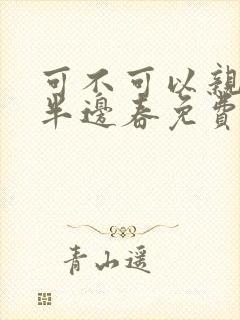 可不可以親
半邊春免費
青山遥